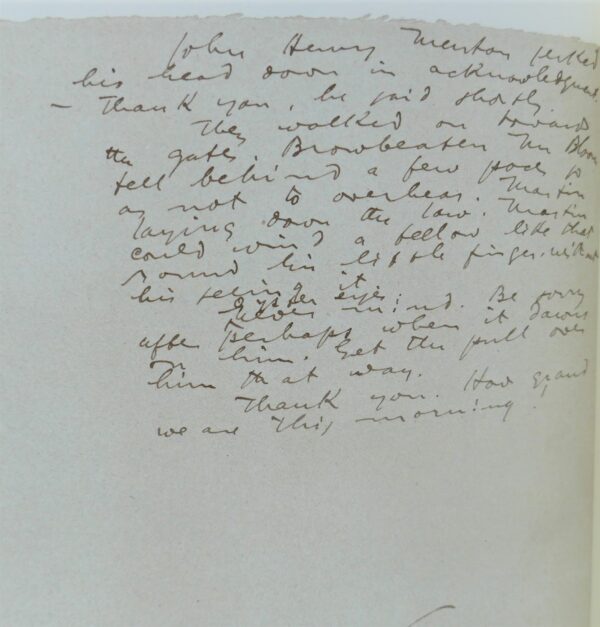 John Henry Menton jerked
his head down in acknowledgment.
— Thank you, he said shortly.
They walked on towards
the gates. Browbeaten Mr Bloom
fell behind a few paces so
as not to overhear. Martin
laying down the law. Martin
could wind a fellow like that
round his little finger, without
his seeing it.
Oyster eyes:
Never mind. Be sorry
after perhaps when it dawns
on him. Get the pull over
him that way.
Thank you. How grand
we are this morning.